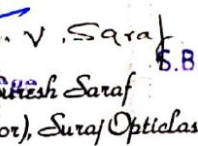 . V. Saraf
S.B
Suresh Saraf
or), Suraj Opticlas